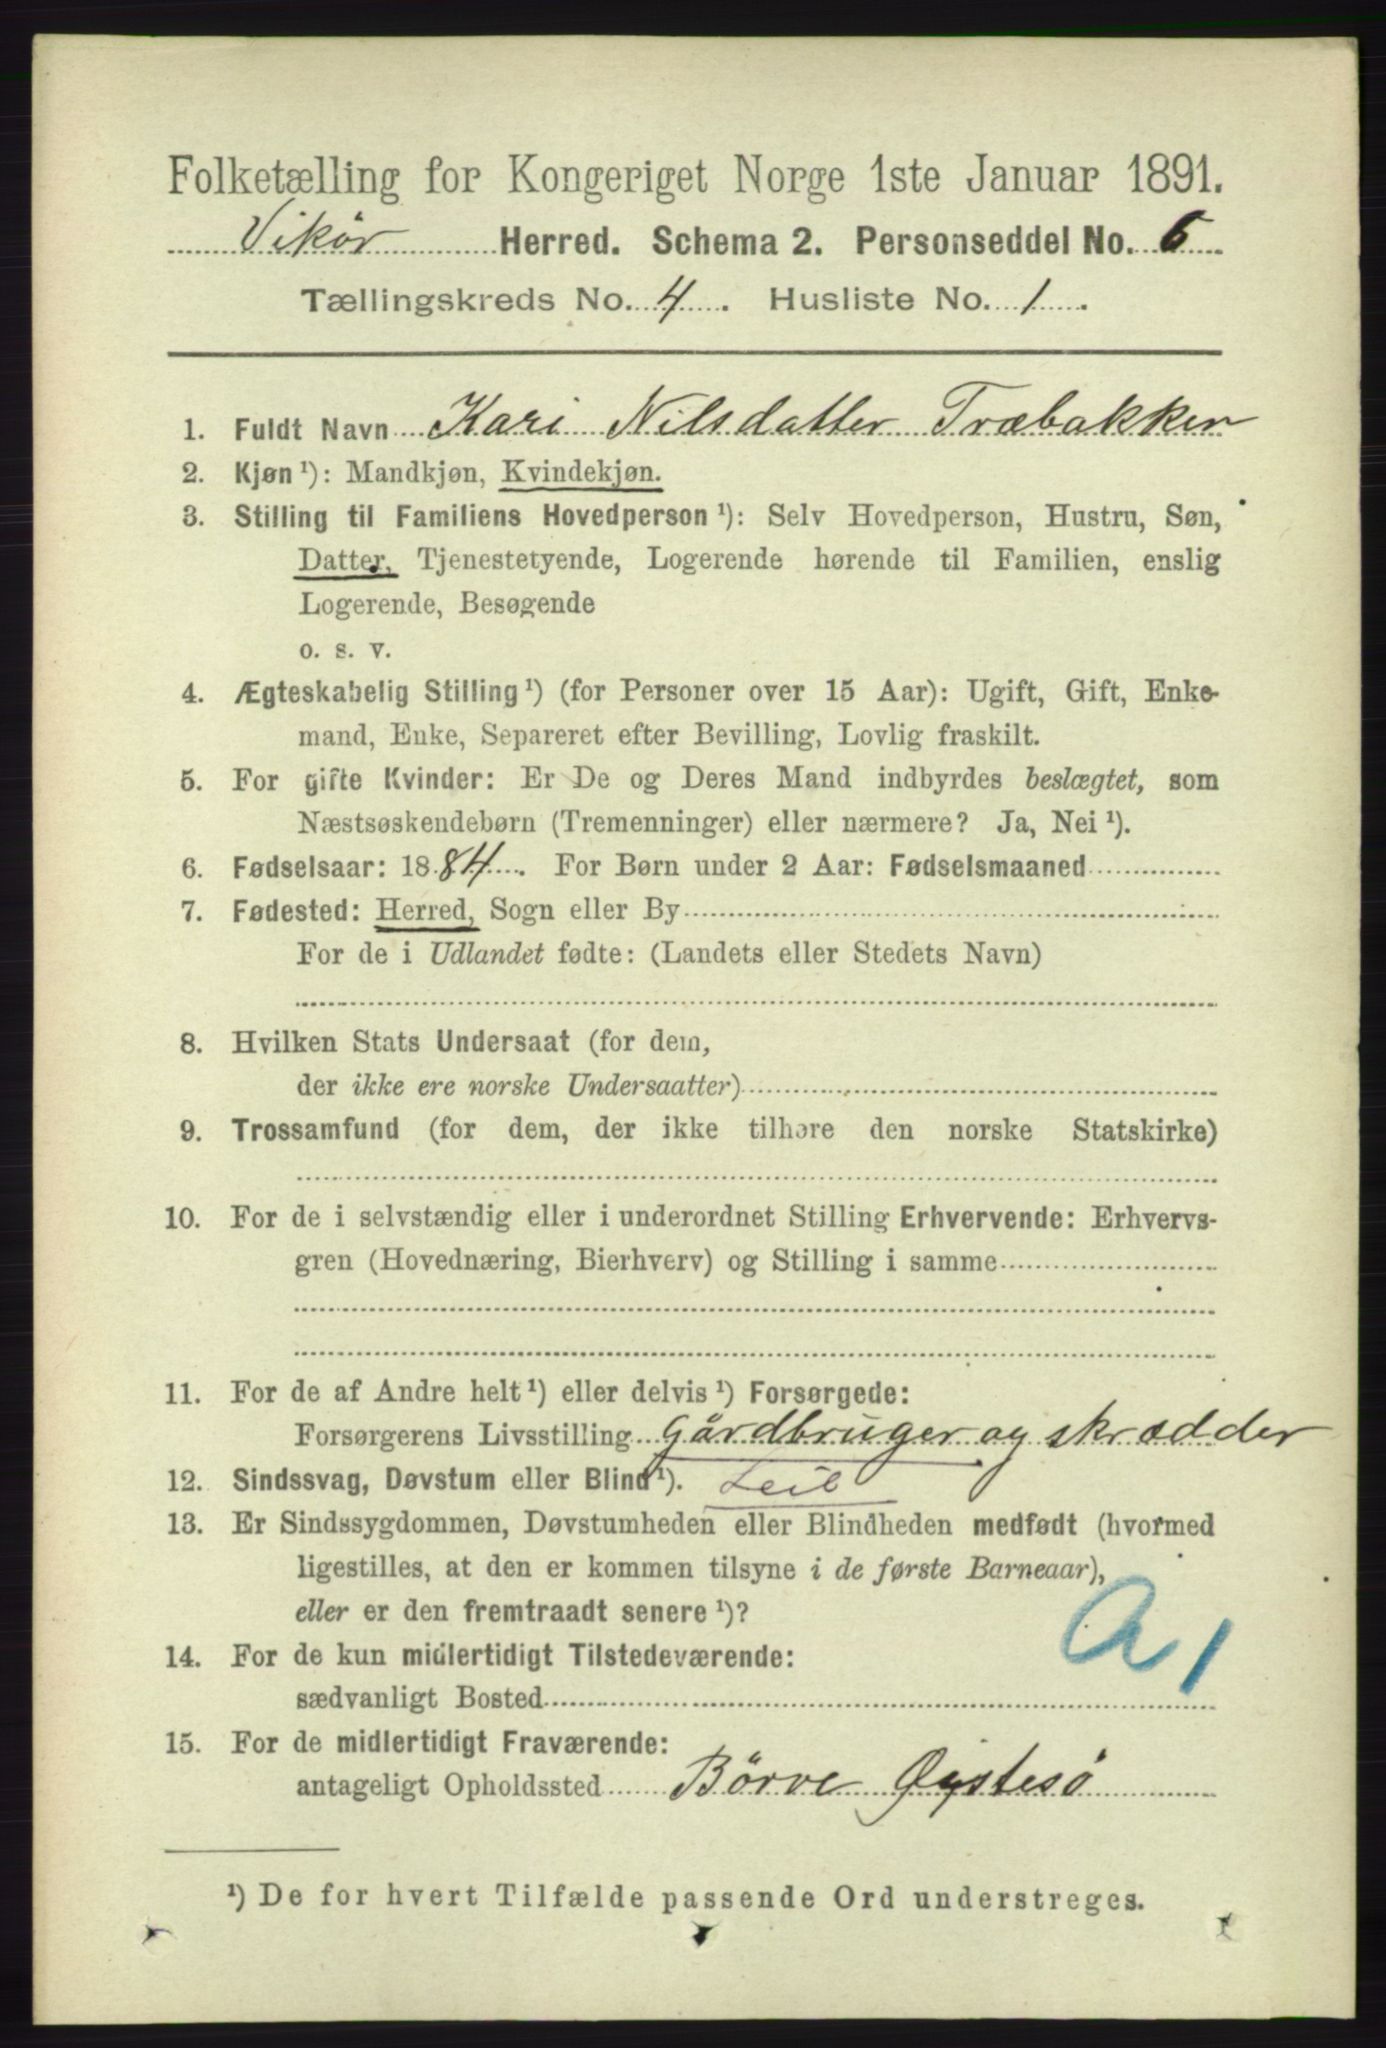 Folketælling for Kongeriget Norge 1ste Januar 1891.
Vikør Herred. Schema 2. Personseddel No. 6
Tællingskreds No. 4. Husliste No. 1.
1. Fuldt Navn Kari Nilsdatter Træbakken
2. Kjøn ¹): Mandkjøn, Kvindekjøn.
3. Stilling til Familiens Hovedperson ¹): Selv Hovedperson, Hustru, Søn,
Datter, Tjenestetyende, Logerende hørende til Familien, enslig
Logerende, Besøgende
o. s. v.
4. Ægteskabelig Stilling ¹) (for Personer over 15 Aar): Ugift, Gift, Enke-
mand, Enke, Separeret efter Bevilling, Lovlig fraskilt.
5. For gifte Kvinder: Er De og Deres Mand indbyrdes beslægtet, som
Næstsøskendebørn (Tremenninger) eller nærmere? Ja, Nei ¹).
6. Fødselsaar: 1884. For Børn under 2 Aar: Fødselsmaaned
7. Fødested: Herred, Sogn eller By
For de i Udlandet fødte: (Landets eller Stedets Navn)
8. Hvilken Stats Undersaat (for dem,
der ikke ere norske Undersaatter)
9. Trossamfund (for dem, der ikke tilhøre den norske Statskirke)
10. For de i selvstændig eller i underordnet Stilling Erhvervende: Erhvervs-
gren (Hovednæring, Bierhverv) og Stilling i samme
11. For de af Andre helt ¹) eller delvis ¹) Forsørgede:
Forsørgerens Livsstilling Gårdbruger og skrædder
12. Sindssvag, Døvstum eller Blind ¹). Leil
13. Er Sindssygdommen, Døvstumheden eller Blindheden medfødt (hvormed
ligestilles, at den er kommen tilsyne i de første Barneaar),
eller er den fremtraadt senere ¹)?
A1
14. For de kun midlertidigt Tilstedeværende:
sædvanligt Bosted
15. For de midlertidigt Fraværende:
antageligt Opholdssted Børve Øystesø
¹) De for hvert Tilfælde passende Ord understreges.